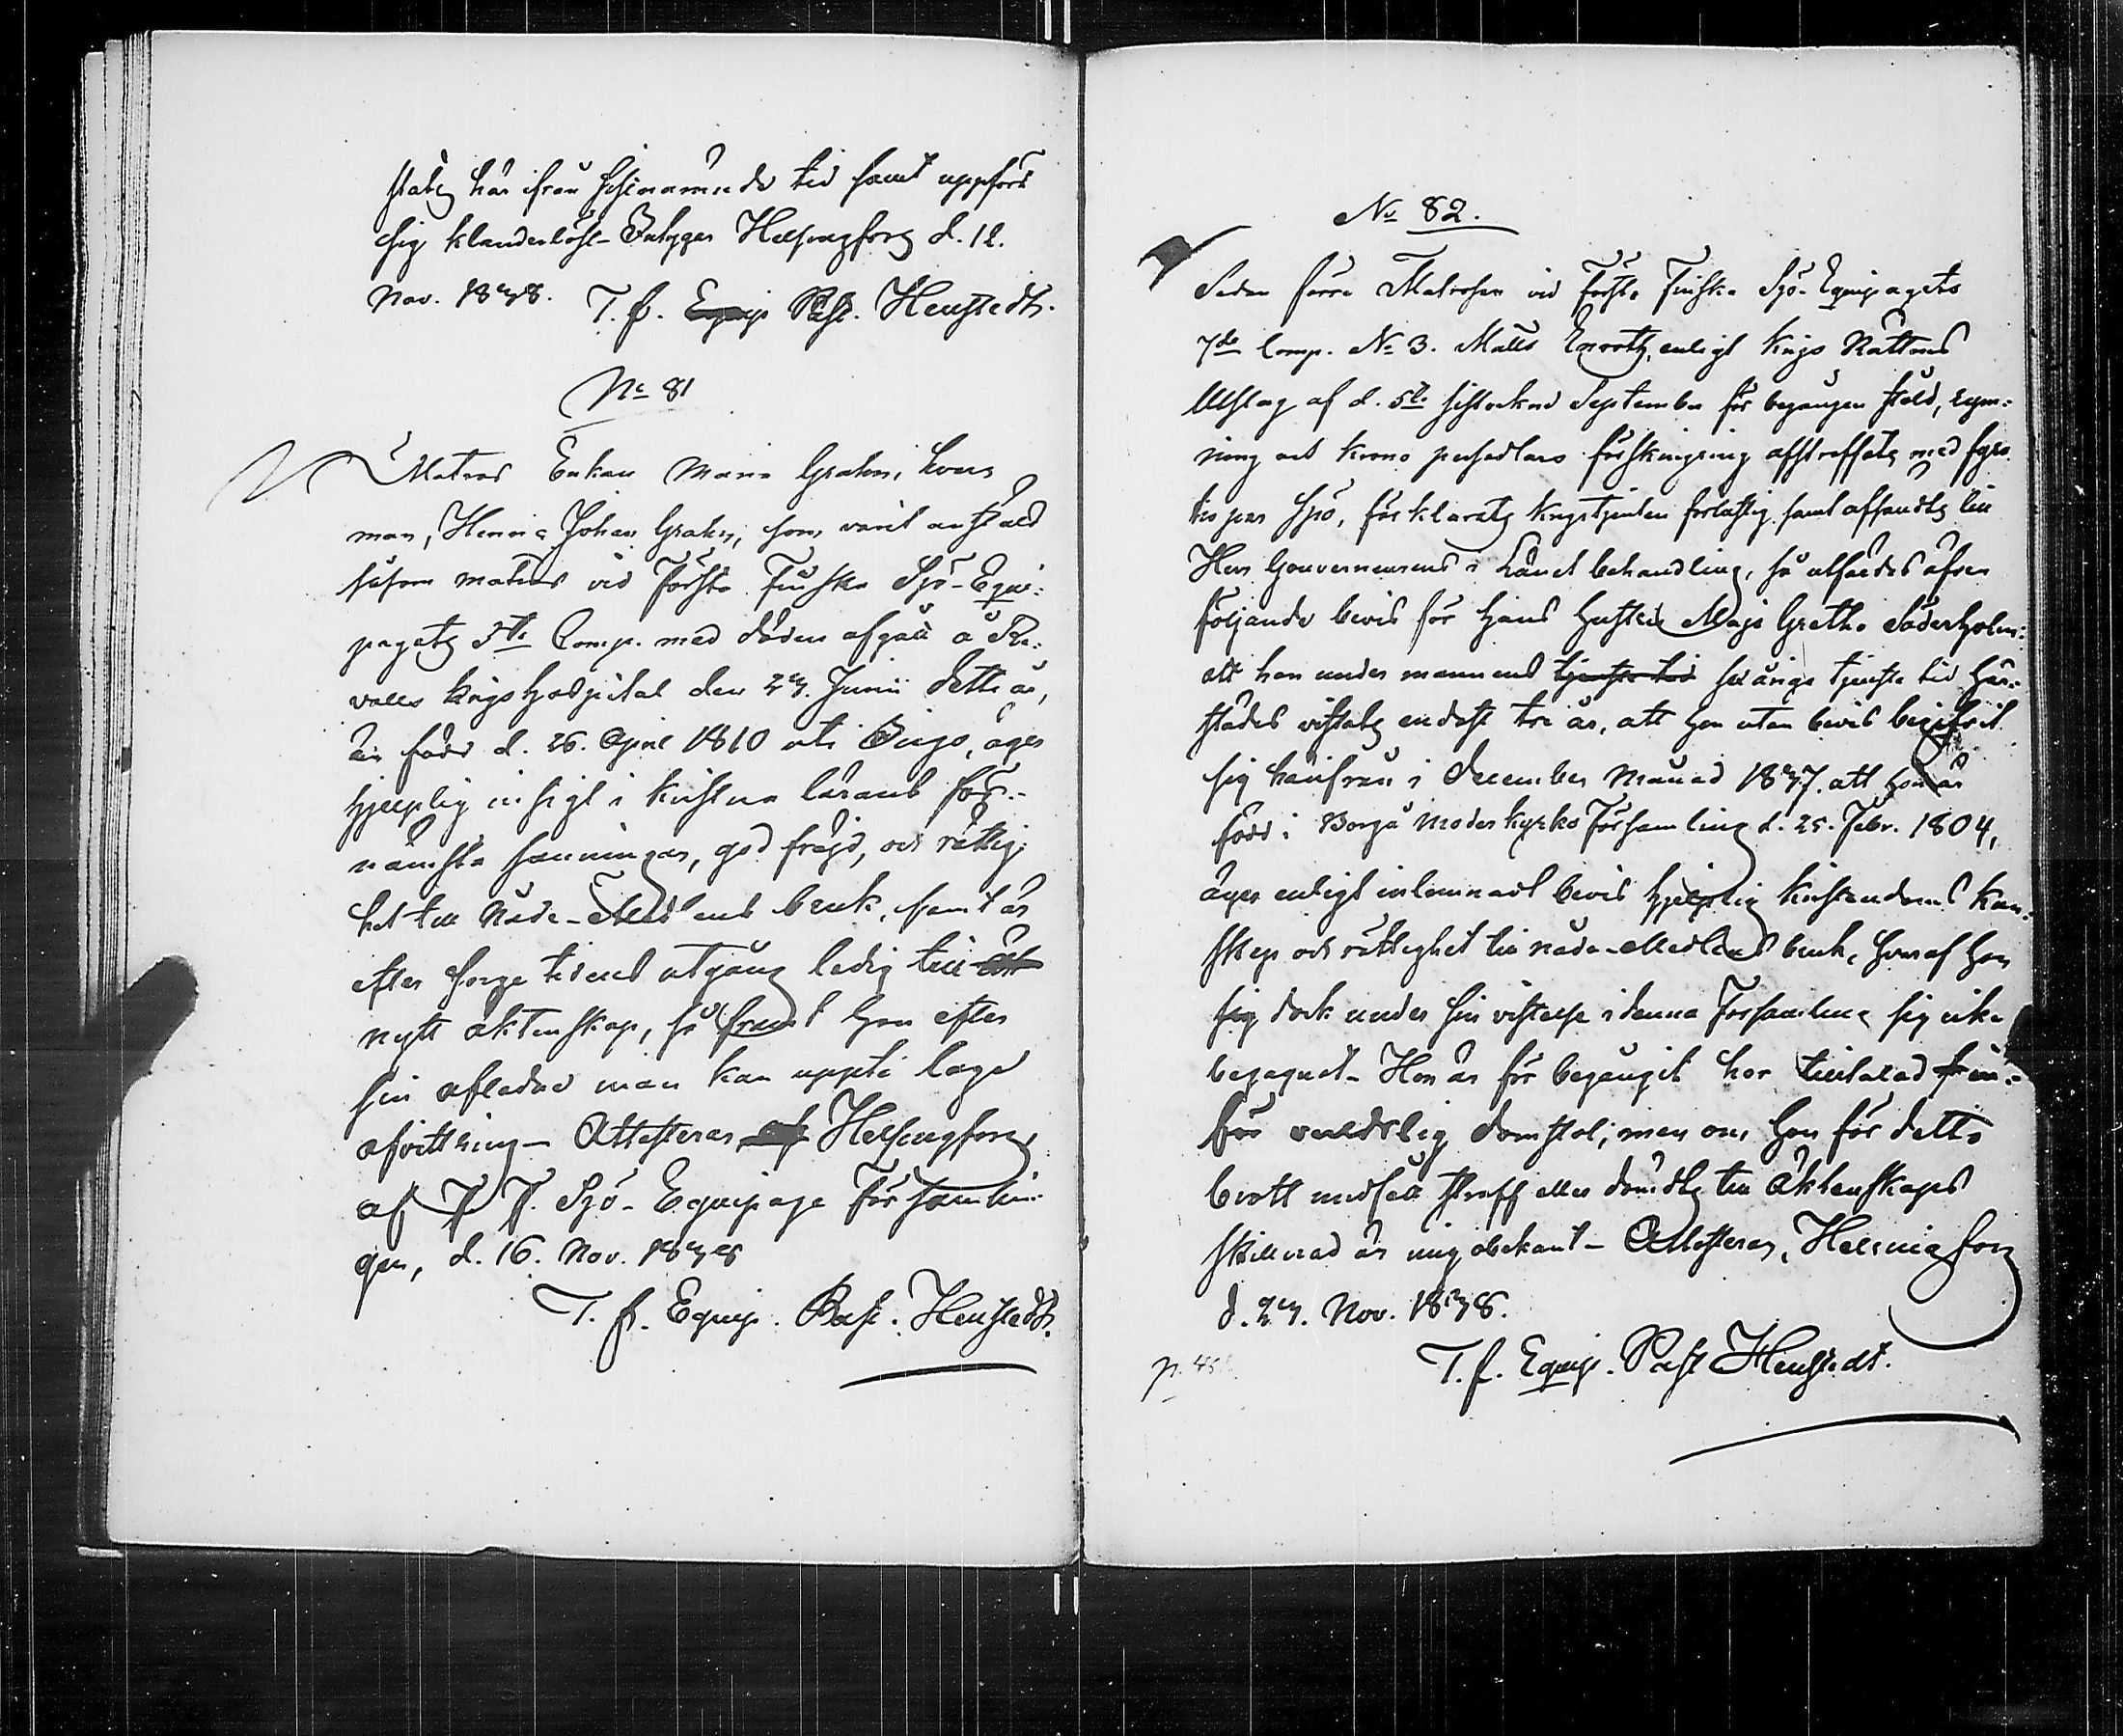 statz här ifrån sistnämnde tid samt uppfört
sig klanderlöst – Betygar Helsingfors d. 12.
Nov. 1838.
T. f. Equip Past. Heustedt.
No 81
Matros Enkan Maria Grahn, hvars
man, Henric Johan Grahn, som varit anstäld
såsom matros vid Första Finska Sjö-Equi-
pagets 3de Comp. med döden afgått å Re-
valls Krigs Hospital den 27. Junii detta år,
är född d. 26. April 1810 uti Ingo, äger
hjelplig insigt i kristna lärans för-
nämsta sanningar, god frägd, och rättig-
het till Nåde-Medlens bruk, samt är
efter sorge tidens utgång ledig till
nytt äktenskap, så framt hon efter
sin afledne man kan uppte laga
afvittring – Attesteras, Helsingfors
af F. F. Sjö-Equipage Församlin-
gen, d. 16. Nov. 1838
T. f. Equip. Past. Heustedt.
No 82.
Sedan förre Matrosen vid Första Finska Sjö-Equipagets
7de Comp. No 3. Matts Enroth, enligt Krigs Rättens
Utslag af d. 5te sistvekne September för begången stöld, rym-
ning och krono persedlars förskingring afstraffats med fyra-
tio par Spö, förklarats Krigstjensten förlustig samt afsändts till
Herr Gouverneurens i Länet behandling, så utfärdas äfven
följande bevis för hans hustru Maja Gretha Söderholm:
att hon under mannens tjenste tid sexåriga tjenste tid här-
städes vistats endast tre år, att hon utan bevis begifvit
sig härifrån i December månad 1837. att hon är
född i Borgå moderkyrko Församling d. 25. Febr. 1804,
äger enligt inlemnadt bevis hjelplig kristendoms kun-
skap och rättighet till nåde-Medlens bruk, hvaraf hon
sig dock under sin vistelse i denna Församling sig icke
begagnat – Hon är för begånget hor tilltalad
för verldslig domstol; men om hon för detta
brott undfått straff eller dömdts till Äktenskaps
skillnad är mig obekant – Attesteras, Helsingfors
d. 27. Nov. 1838.
T. f. Equip. Past Heustedt.